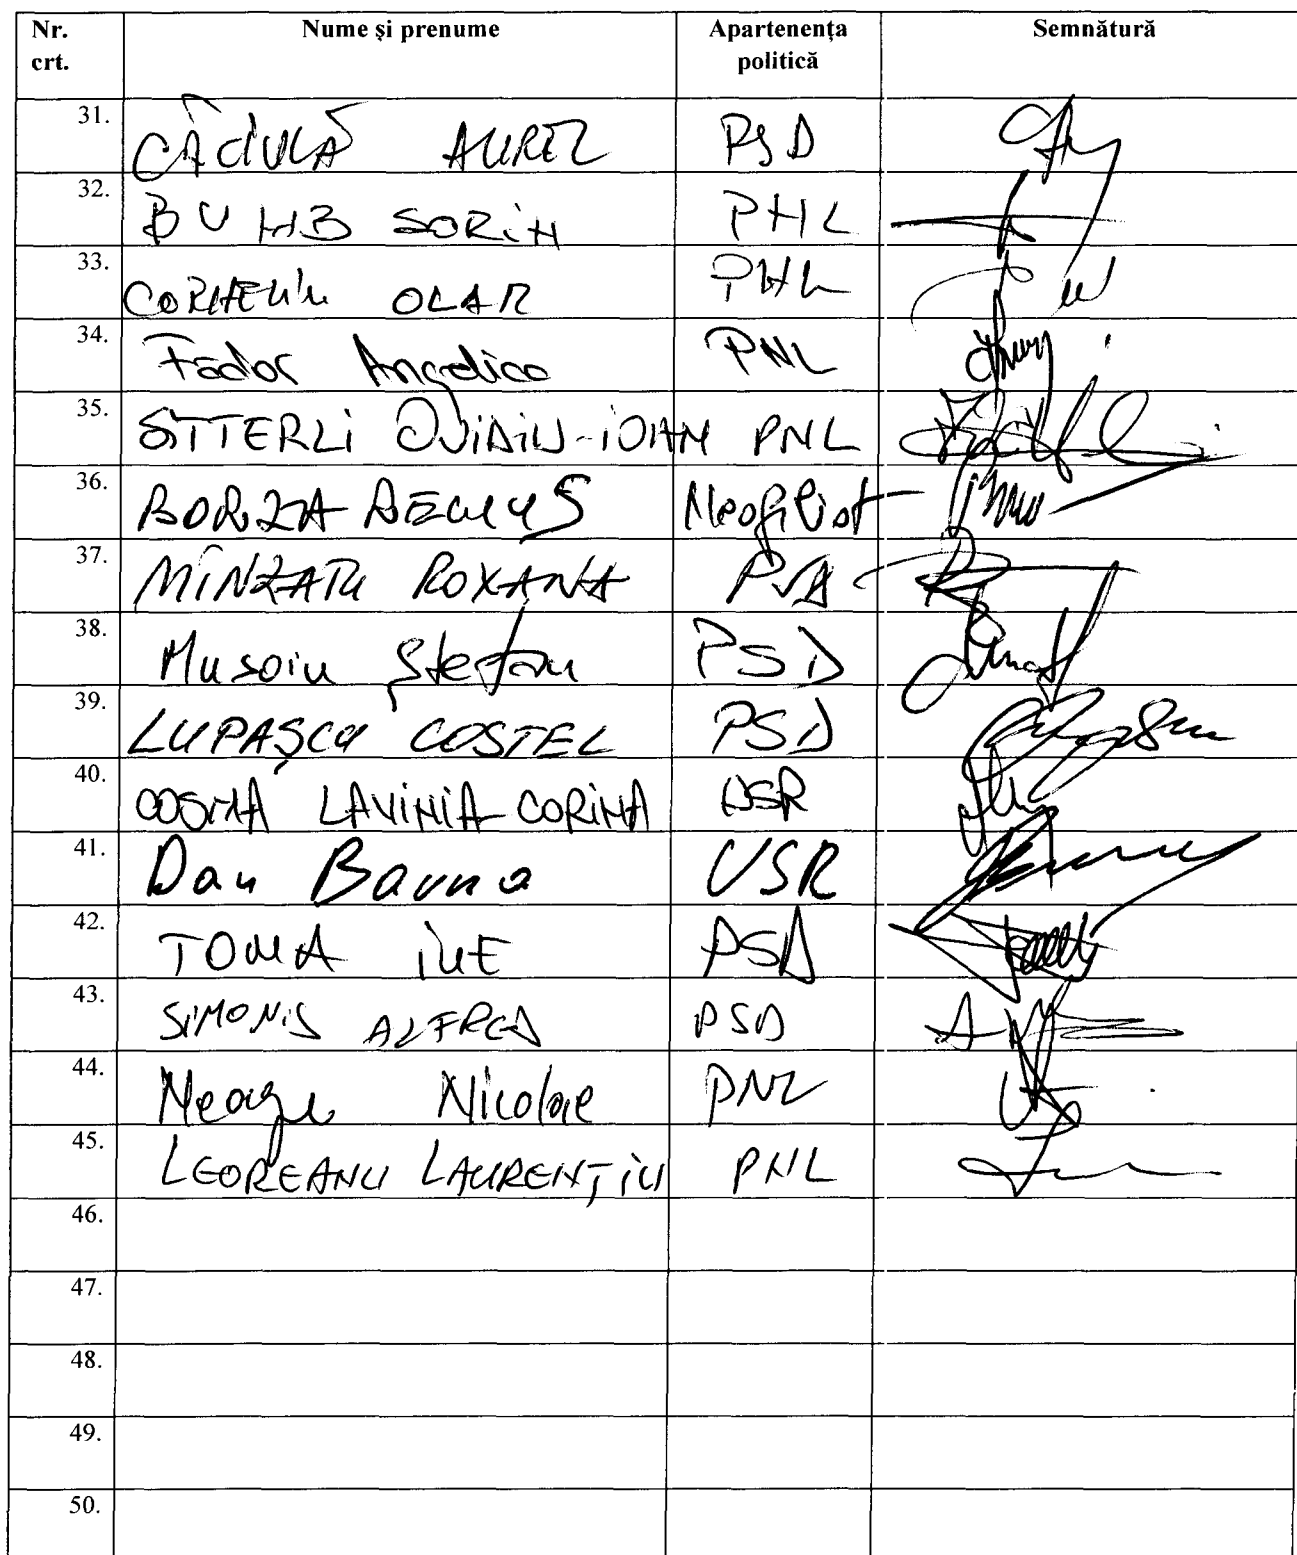 Nr. crt. Nume și prenume Apartenența politică Semnătură
31. CĂCIULĂ AUREL PSD
32. BUMB SORIN PNL
33. CORNELIU OLAR PNL
34. Fador Angelica PNL
35. SITTERLI OVIDIU-IOAN PNL
36. BORZA REMUS Neafiliat
37. MÎNZATU ROXANA PSD
38. Mușoiu Ștefan PSD
39. LUPAȘCU COSTEL PSD
40. COSMA LAVINIA-CORINA USR
41. Dan Barna USR
42. TOMA ILIE PSD
43. SIMONIS ALFRED PSD
44. Neagu Nicolae PNL
45. LEOREANU LAURENȚIU PNL
46.
47.
48.
49.
50.